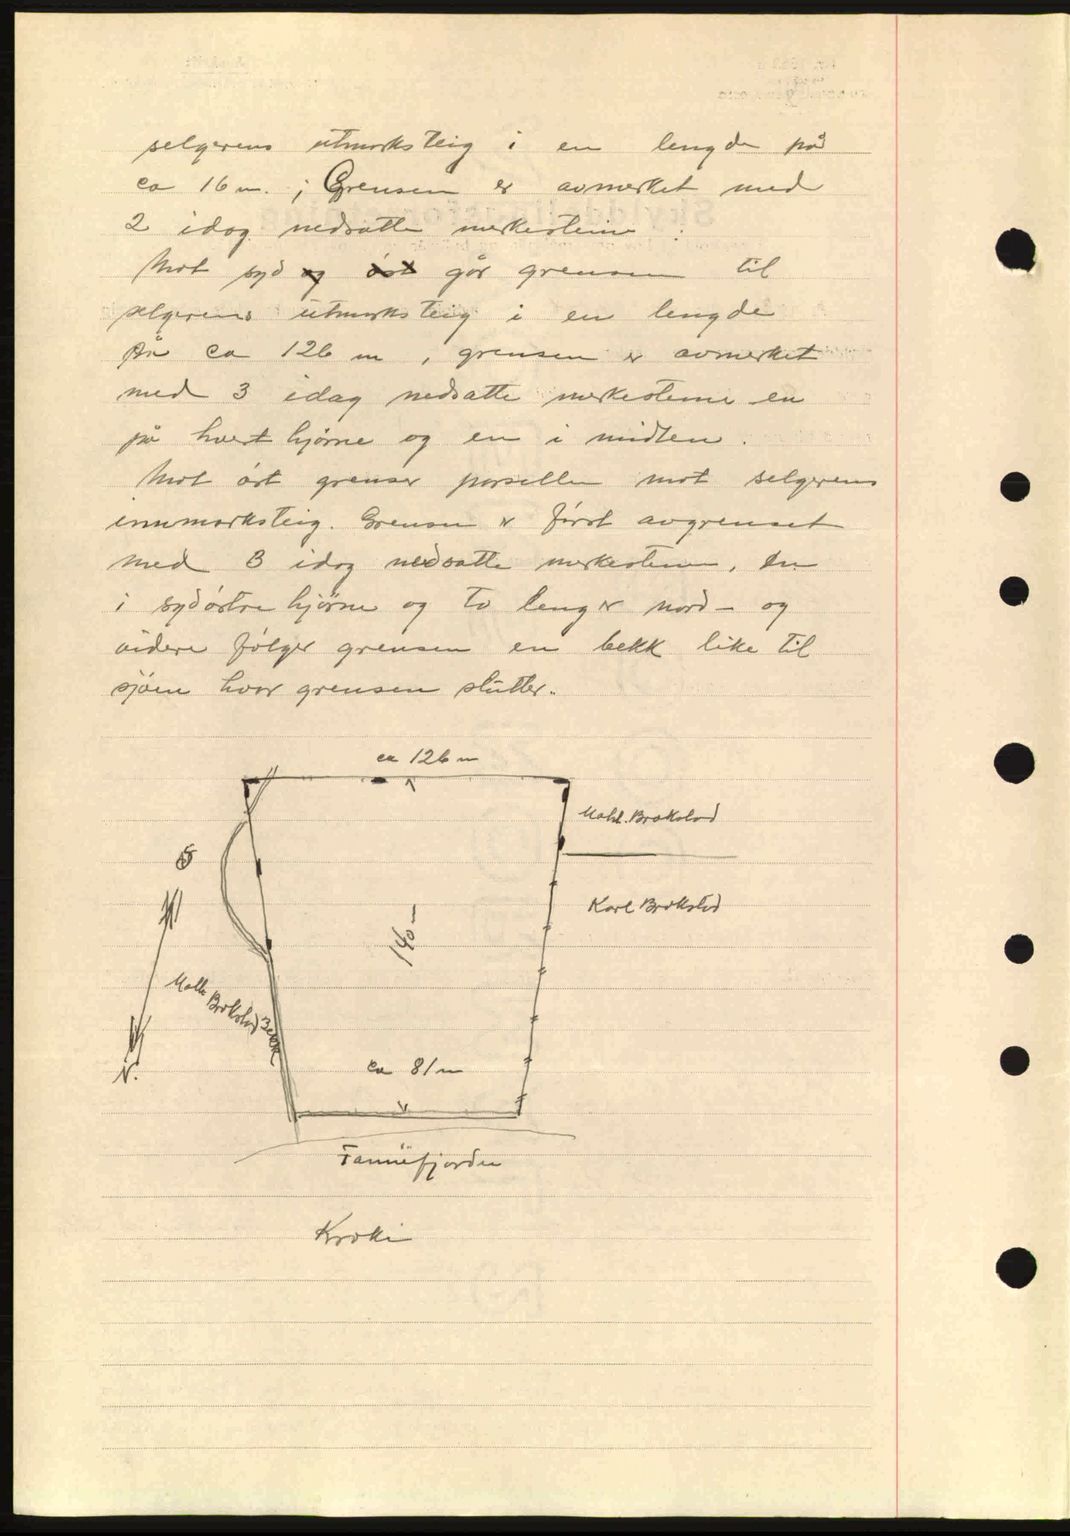 selgerens utmarksteig i en lengde på
ca 16 m. ; Grensen er avmerket med
2 idag nedsatte merkestene .
Mot syd og öst går grensen til
selgerens utmarksteig i en lengde
på ca 126 m , grensen er avmerket
med 3 idag nedsatte merkestene en
på hvert hjörne og en i midten .
Mot öst grenser parsellen mot selgerens
innmarksteig. Grensen er först avgrenset
med 3 idag nedsatte merkestene, en
i sydöstre hjörne og to lenger nord - og
videre fölger grensen en bekk like til
sjöen hvor grensen slutter.
ca 126 m
Brokstad
S
Karl Brokstad
140
Brokstad
Bekk
ca 81 m
N.
Fannefjorden
Kroki